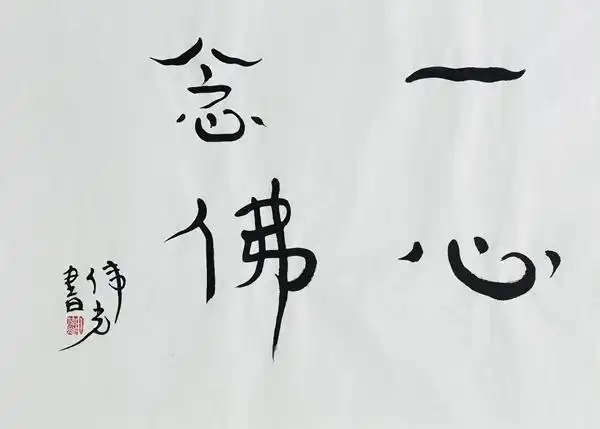 一心
念佛
伟光
書